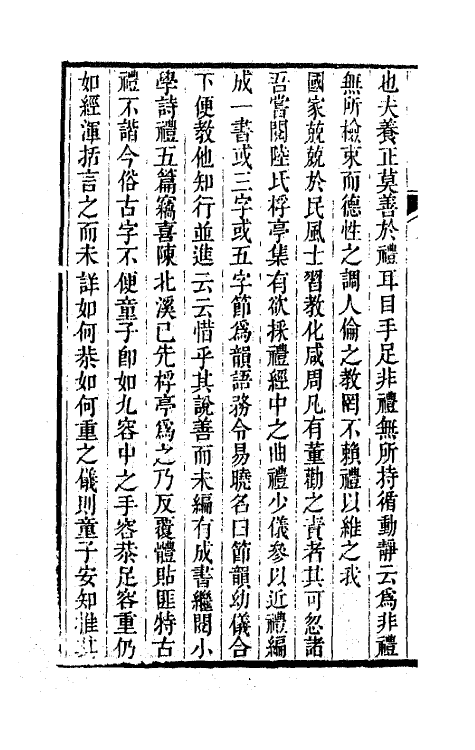 也夫養正莫善於禮耳目手足非禮無所持循動靜云爲非禮
無所檢束而德性之調人倫之教罔不賴禮以維之我
國家兢兢於民風士習教化咸周凡有董勸之責者其可忽諸
吾嘗閱陸氏桴亭集有欲採禮經中之曲禮少儀參以近禮編
成一書或三字或五字節爲韻語務令易曉名曰節韻幼儀合
下便教他知行並進云云惜乎其說善而未編有成書繼閱小
學詩禮五篇竊喜陳北溪已先桴亭爲之乃反覆體貼匪特古
禮不諧今俗古字不便童子卽如九容中之手容恭足容重仍
如經渾括言之而未詳如何恭如何重之儀則童子安知推其